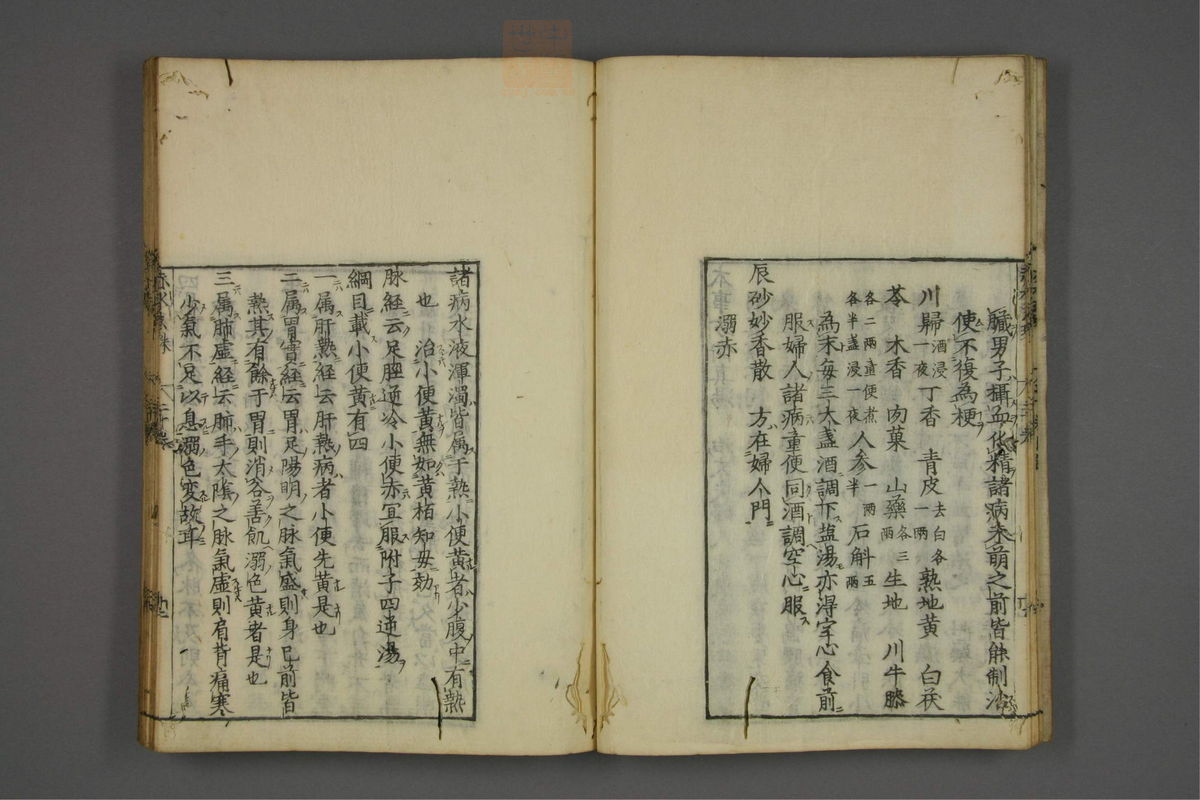 臓男子攝血化精諸病未萌之前皆能制治
使不復為梗
川歸酒浸一夜 丁香 青皮去白各一両 熟地黄 白茯
苓 木香 肉菓 山藥各三両 生地 川牛膝
各二両童便煮各半盞浸一夜 人参半一両 石斛五両
為末毎三大盞酒調下塩湯亦得字心食前
服婦人諸病童便同酒調空心服
辰砂妙香散 方在婦人門
溺赤
諸病水液渾濁皆属于熱小便黄者少腹中有熱
也 治小便黄無如黄栢知母効
脉経云足脛逆冷小便赤宜服附子四逆湯
綱目載小便黄有四
一属肝熱経云肝熱病者小便先黄是也
二属胃實経云胃足陽明之脉氣盛則身已前皆
熱其有餘于胃則消谷善飢溺色黄者是也
三属肺虚経云肺手太陰之脉氣虚則肩背痛寒
少氣不足以息溺色変故耳